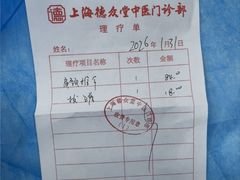 德 上海德众堂中医门诊部
理疗单
姓名: 2026年1月31日
理疗项目名称 次数 金额
1 84.0
1 18.00
上海德众堂中医门诊部
收费专用章
(1)